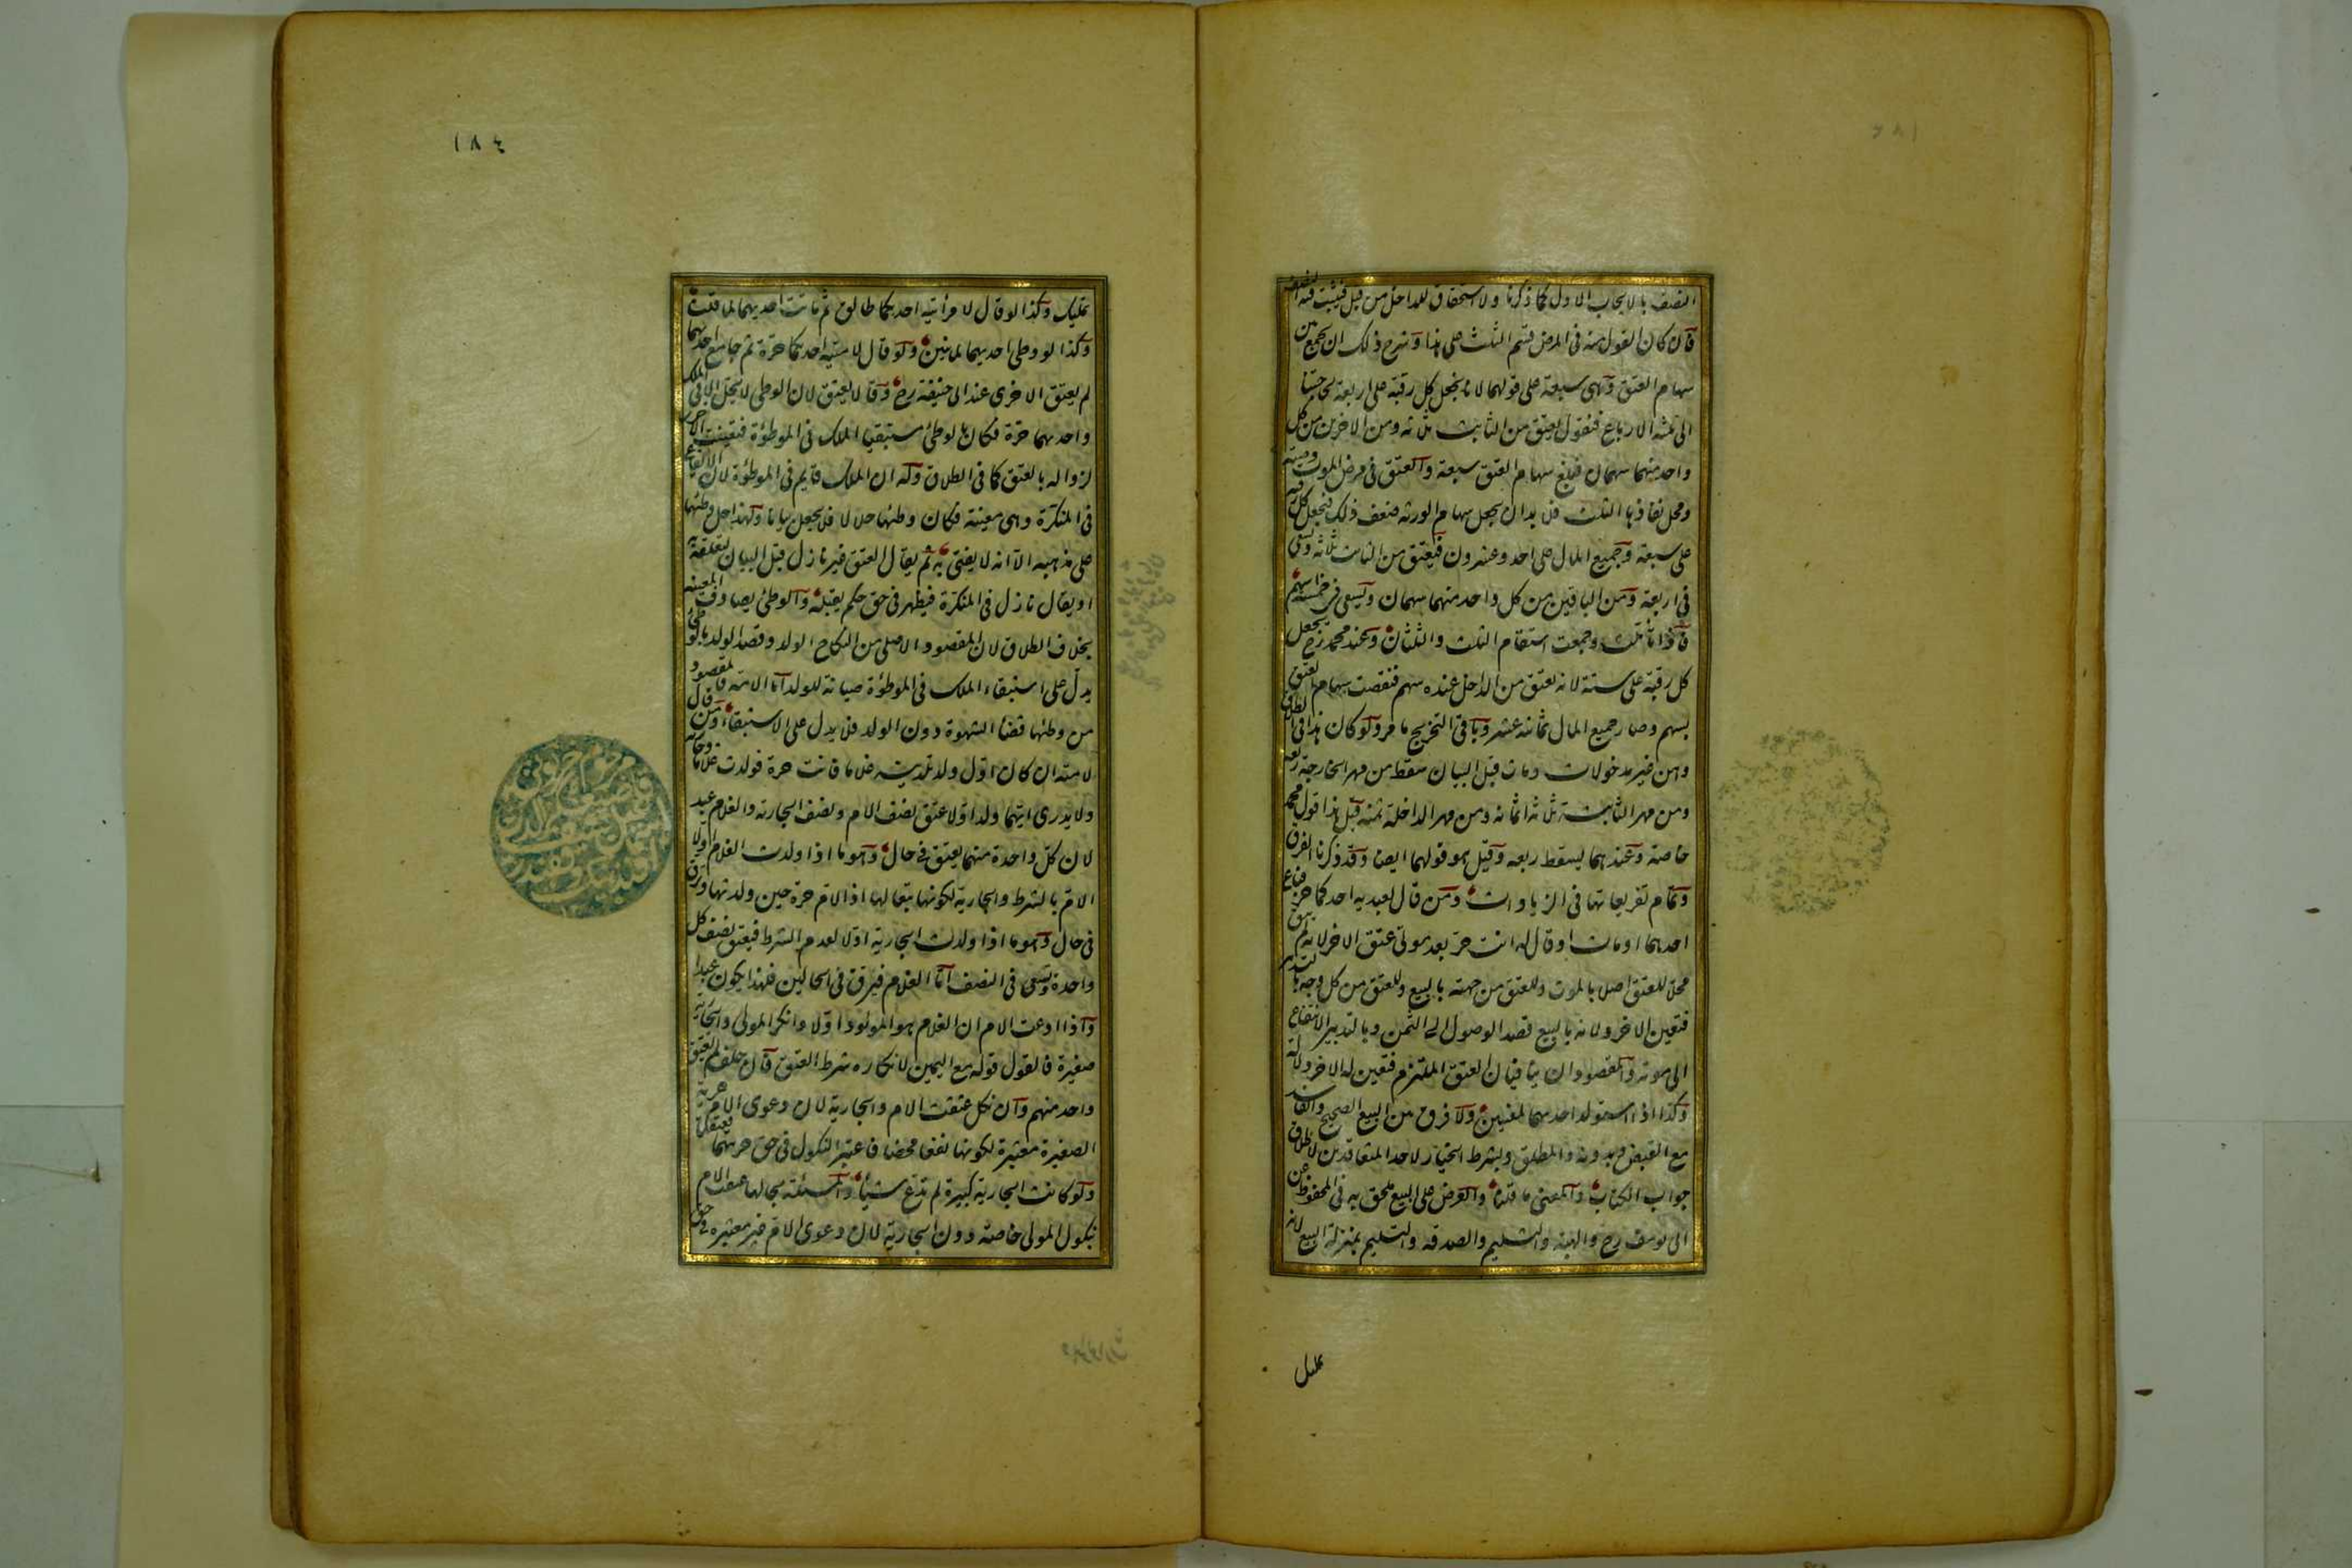 النصف بالايجاب الاول كما ذكرنا ولا استحقاق للداخل من قبل فيثبت فيه النصف
قال كان القول منه في المرض قسم الثلث على هذا وشرح ذلك ان يجمع بين
سهام العتق وهي سبعة على قولهما لانا نجعل كل رقبة على اربعة لحاجتنا
الى ثلثة الارباع فنقول يعتق من الثابت ثلاثة ومن الاخرين من كل
واحد منهما سهمان فبلغ سهام العتق سبعة والعتق في مرض الموت وصية
ومحل نفاذها الثلث فلا بد ان يجعل سهام الورثة ضعف ذلك فنجعل كل رقبة
على سبعة وجميع المال على احد وعشرون فيعتق من الثابت ثلاثة ويسعى
في اربعة ومن الباقين من كل واحد منهما سهمان ويسعى في خمسة اسهم
فاذا تأملت وجمعت استقام الثلث والثلثان وعند محمد رح يجعل
كل رقبة على ستة لانه يعتق من الداخل عنده سهم فنقصت سهام العتق
بسهم وصار جميع المال ثمانية عشر وباقي التخريج ما مر ولو كان هذا في الطلاق
وهن غير مدخولات ومات قبل البيان سقط من مهر الخارجة ربعه
ومن مهر الثابتة ثلاثة اثمانه ومن مهر الداخلة ثمنه قيل هذا قول محمد
خاصة وعندهما يسقط ربعه وقيل هو قولهما ايضا وقد ذكرنا الفرق
وتمام تفريعاتها في الزيادات ومن قال لعبديه احدكما حر فباع
احدهما او مات او قال له انت حر بعد موتي عتق الاخر لانه لم يبق
محلا للعتق اصلا بالموت وللعتق من جهته بالبيع وللعتق من كل وجه بالتدبير
فتعين الاخر ولانه بالبيع قصد الوصول الى الثمن وبالتدبير الانتفاع
الى موته والمقصودان ينافيان العتق الملتزم فتعين له الاخر دلالة
وكذا اذا استولد احدهما لمعنيين ولا فرق بين البيع الصحيح والفاسد
مع القبض وبدونه والمطلق وبشرط الخيار لاحد المتعاقدين لاطلاق
جواب الكتاب والمعنى ما قلنا والعرض على البيع ملحق به في المحفوظ عن
ابي يوسف رح والهبة والتسليم والصدقة والتسليم بمنزلة البيع لانه
١٨٤
تمليك وكذا لو قال لامرأتيه احديكما طالق ثم ماتت احديهما لما قلنا
وكذا لو وطى احديهما لما نبين ولو قال لامتيه احديكما حرة ثم جامع احديهما
لم يعتق الاخرى عند ابي حنيفة رح وقالا يعتق لان الوطى لا يحل الا في الملك
واحديهما حرة فكان بالوطئ مستبقيا الملك في الموطؤة فتعينت الاخرى
لزواله بالعتق كما في الطلاق وله ان الملك قايم في الموطؤة لان الايقاع
في المنكرة وهي معينة فكان وطئها حلالا فلا يجعل بيانا ولهذا حل وطئهما
على مذهبه الا انه لا يفتى به ثم يقال العتق غير نازل قبل البيان لتعلقه به
او يقال نازل في المنكرة فيظهر في حق حكم يقبله والوطئ يصادف المعينة
بخلاف الطلاق لان المقصود الاصلى من النكاح الولد وقصد الولد بالوطئ
يدل على استبقاء الملك في الموطؤة صيانة للولد اما الامة فالمقصود
من وطئها قضاء الشهوة دون الولد فلا يدل على الاستبقاء ومن قال
لامته ان كان اول ولد تلديه غلاما فانت حرة فولدت غلاما وجارية
ولا يدرى ايهما ولد اولا عتق نصف الام ونصف الجارية والغلام عبد
لان كل واحدة منهما يعتق في حال وهو ما اذا ولدت الغلام اولا
الام بالشرط والجارية لكونها تبعا لها اذ الام حرة حين ولدتها وترق
في حال وهو ما اذا ولدت الجارية اولا لعدم الشرط فيعتق نصف كل
واحدة وتسعى في النصف اما الغلام فيرق في الحالين فلهذا يكون عبدا
واذا ادعت الام ان الغلام هو المولود اولا وانكر المولى والجارية
صغيرة فالقول قوله مع اليمين لانكاره شرط العتق فان حلف لم يعتق
واحد منهم وان نكل عتقت الام والجارية لان دعوى الام حرية
الصغيرة معتبرة لكونها نفعا محضا فاعتبر النكول في حق حريتهما فعتقتا
ولو كانت الجارية كبيرة لم تدع شيئا والمسئلة بحالها عتقت الام
بنكول المولى خاصة دون الجارية لان دعوى الام غير معتبرة في حق